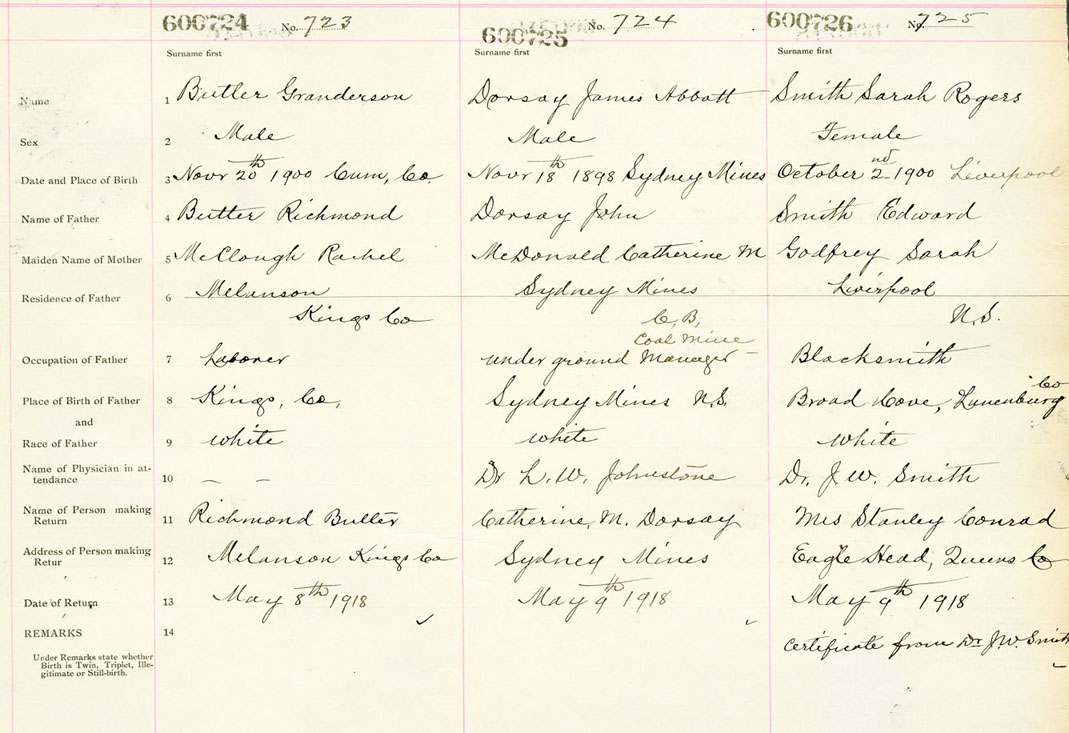 600724 No. 723 600725 No. 724 600726 No. 725
Surname first Surname first Surname first
Name 1 Butler Granderson Dorsay James Abbott Smith Sarah Rogers
Sex 2 Male Male Female
Date and Place of Birth 3 Novr 20th 1900 Cum, Co. Novr 18th 1898 Sydney Mines October 2nd 1900 Liverpool
Name of Father 4 Butler Richmond Dorsay John Smith Edward
Maiden Name of Mother 5 McClough Rachel McDonald Catherine M Godfrey Sarah
Residence of Father 6 Melanson Sydney Mines Liverpool
Kings Co C, B, N.S.
Coal Mine
Occupation of Father 7 Laborer underground Manager Blacksmith
Place of Birth of Father 8 Kings, Co, Sydney Mines N.S. Broad Cove, Lunenburg Co
and
Race of Father 9 white white White
Name of Physician in at-
tendance 10 – – Dr L. W. Johnstone Dr. J. W. Smith
Name of Person making
Return 11 Richmond Butler Catherine, M. Dorsay Mrs Stanley Conrad
Address of Person making
Retur 12 Melanson Kings Co Sydney Mines Eagle Head, Queens Co
Date of Return 13 May 8th 1918 May 9th 1918 May 9th 1918
REMARKS 14 Certificate from Dr J. W. Smith
Under Remarks state whether
Birth is Twin, Triplet, Ille-
gitimate or Still-birth.